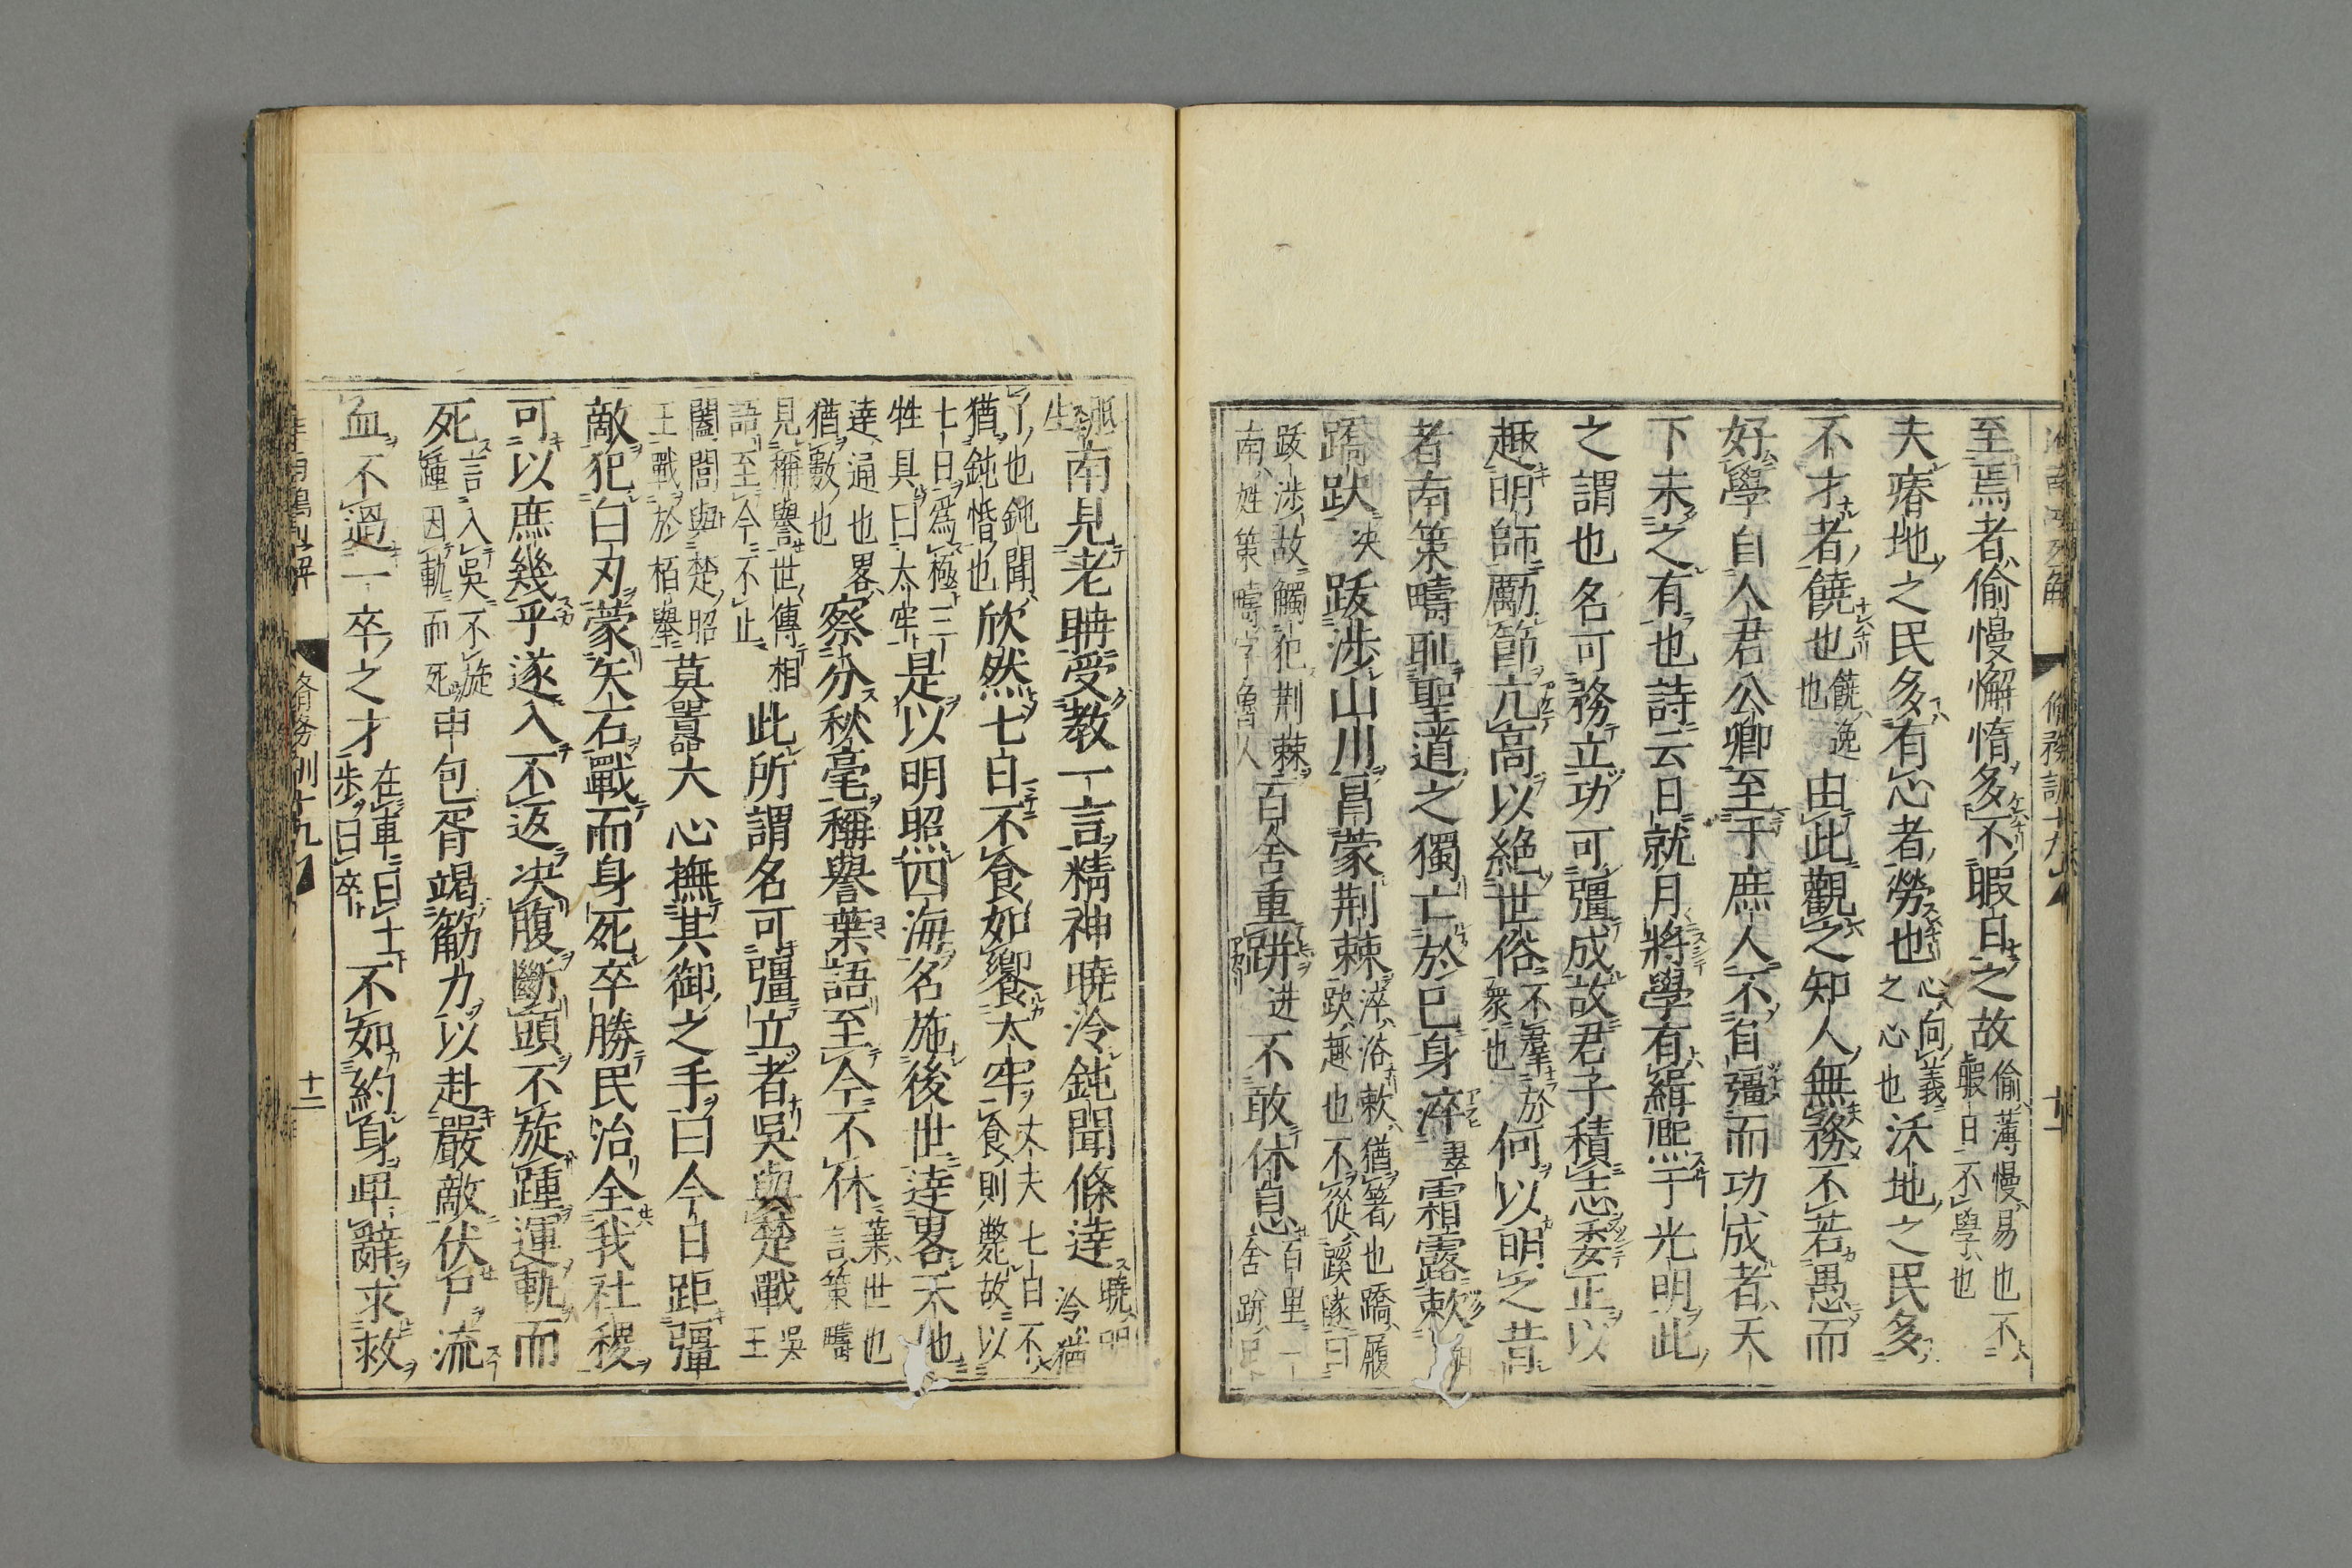 至焉者偷慢懈惰多不暇日之故偷薄慢易也不暇日不學也
夫瘠地之民多有心者勞也心向義之心也沃地之民多
不才者饒也饒逸也由此觀之知人無務不若愚而
好學自人君公卿至于庶人不自彊而功成者天
下未之有也詩云日就月將學有緝熙于光明此
之謂也名可務立功可彊成故君子積志委正以
趣明師勵節亢高以絶世俗不羣於衆也何以明之昔
者南策疇恥聖道之獨亡於己身淬霜露欶
蹻趹決跋涉山川冒蒙荆棘淬浴欶猶箸也蹻履趹趣也不從蹊隧曰
跋涉故觸犯荆棘南姓策疇字魯人百舍重跰进不敢休息百里一舍跰足
生南見老聃受教一言精神曉泠鈍聞條逹曉明泠猶
了也鈍聞猶鈍惛也欣然七日不食如饗太牢大夫七日不食則斃故以
七日爲極三牲具曰太牢是以明照四海名施後世逹畧天地
逹通也畧猶數也察分秋毫稱譽葉語至今不休葉世也言策疇
見稱譽世傳相語至今不止此所謂名可彊立者吳與楚戰吳王
闔閭與楚昭王戰於栢舉莫嚻大心撫其御之手曰今日距彊
敵犯白刃蒙矢石戰而身死卒勝民治全我社稷
可以庶幾乎遂入不返決腹斷頭不旋踵運軌而
死言入吳不旋踵因軌而死申包胥竭筋力以赴嚴敵伏尸流
血不過一卒之才在車曰士步曰卒不如約身卑辭求救
脩務訓十九
十二